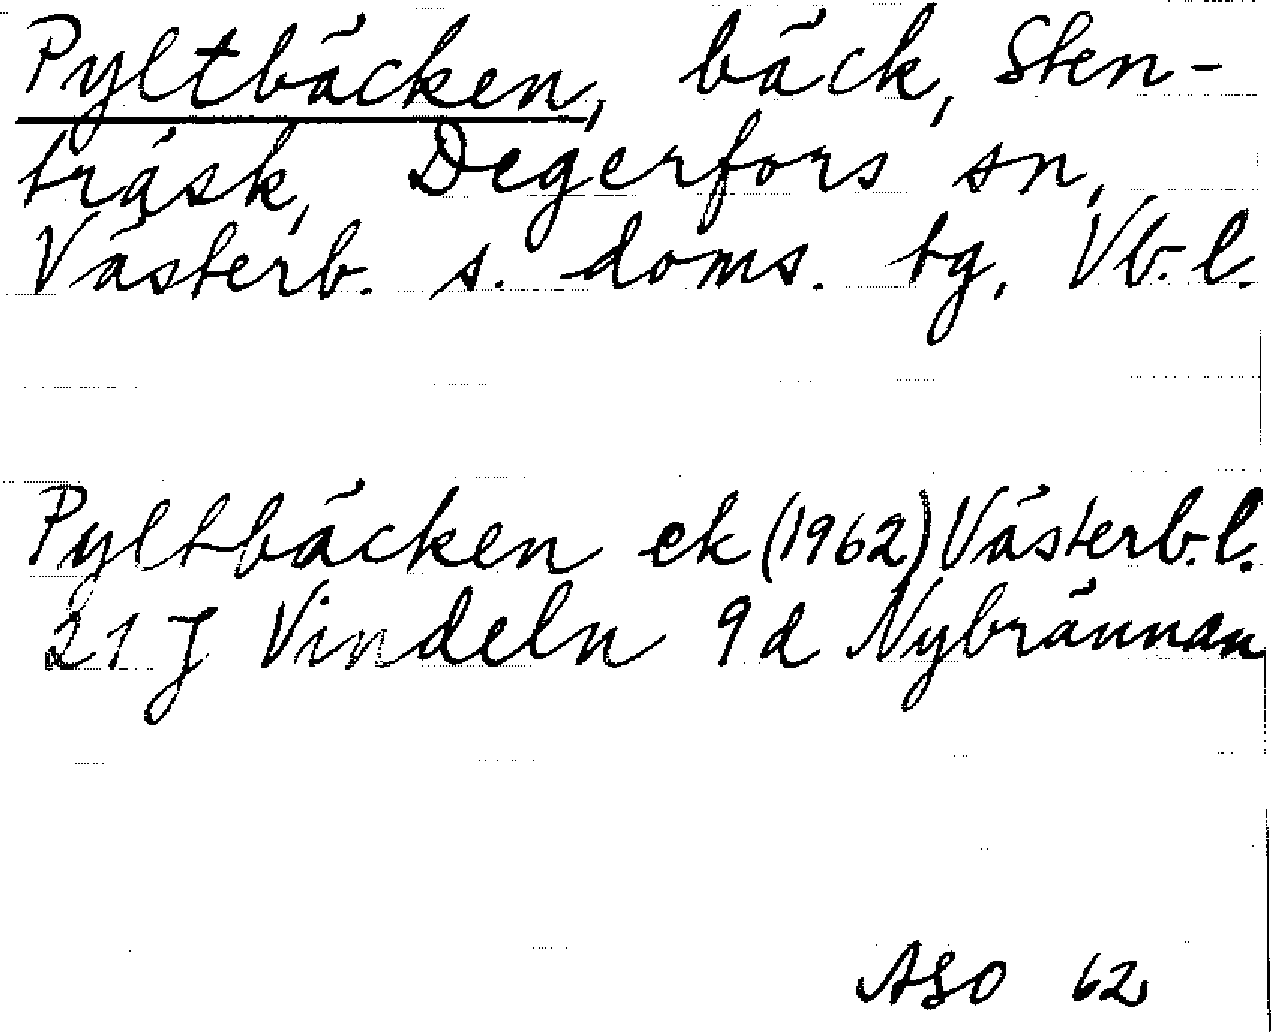 Pyltbäcken, bäck, Sten-
träsk, Degerfors sn,
Västerb. s. doms. tg, Vb. l.
Pyltbäcken ek (1962) Västerb. l.
21 J Vindeln 9 d Nybrännan
ASO 62